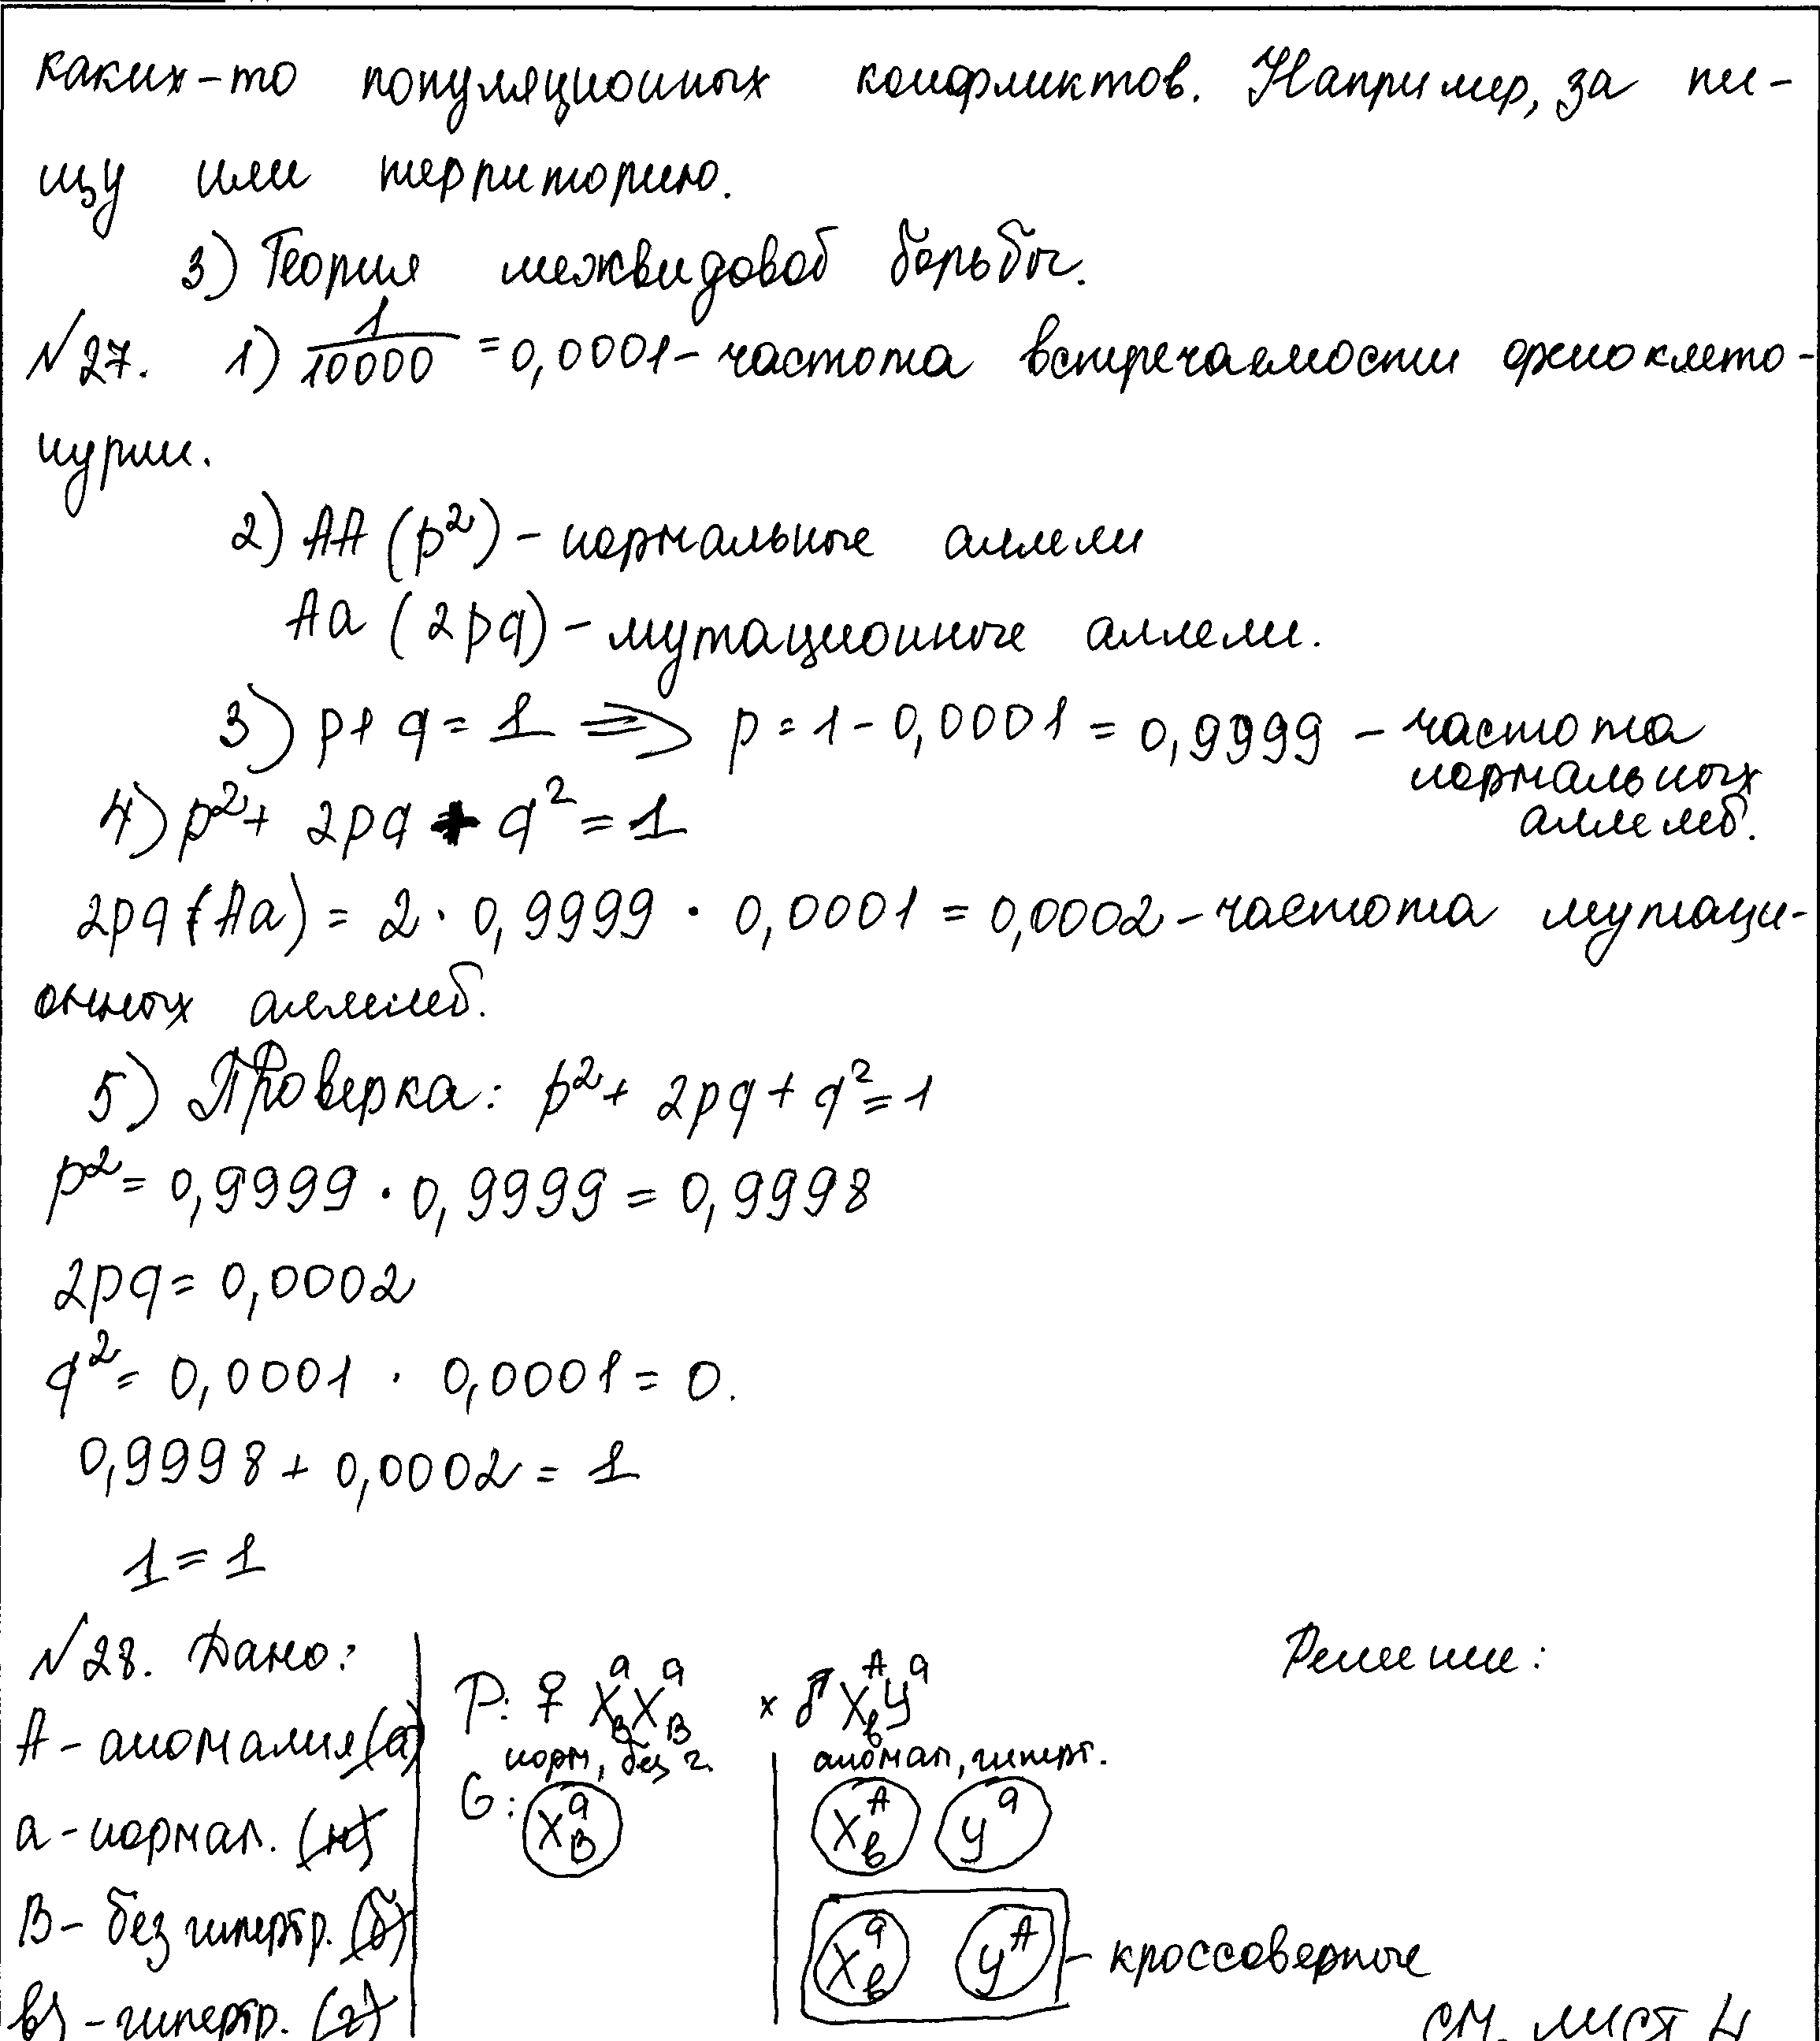 каких-то популяционных конфликтов. Например, за пи-
щу или территорию.
3) Теория межвидовой борьбы.
№27. 1) 1/10000 = 0,0001 - частота встречаемости фенокето-
нурии.
2) AA (p²) - нормальные аллели
Aa (2pq) - мутационные аллели.
3) p + q = 1 => p = 1 - 0,0001 = 0,9999 - частота
нормальных
аллелей.
4) p² + 2pq + q² = 1
2pq (Aa) = 2 · 0,9999 · 0,0001 = 0,0002 - частота мутаци-
онных аллелей.
5) Проверка: p² + 2pq + q² = 1
p² = 0,9999 · 0,9999 = 0,9998
2pq = 0,0002
q² = 0,0001 · 0,0001 = 0.
0,9998 + 0,0002 = 1
1 = 1
№28. Дано: Решение:
P: ♀ XᵃBXᵃB x ♂ XᴬbYᵃ
A - аномалия (а)
норм, без г. аномал, гиперт.
G: XᵃB Xᴬb Yᵃ
a - нормал. (н)
B - без гипертр. (б)
Xᵃb Yᴬ - кроссоверные
b - гипертр. (г)
см. лист 4